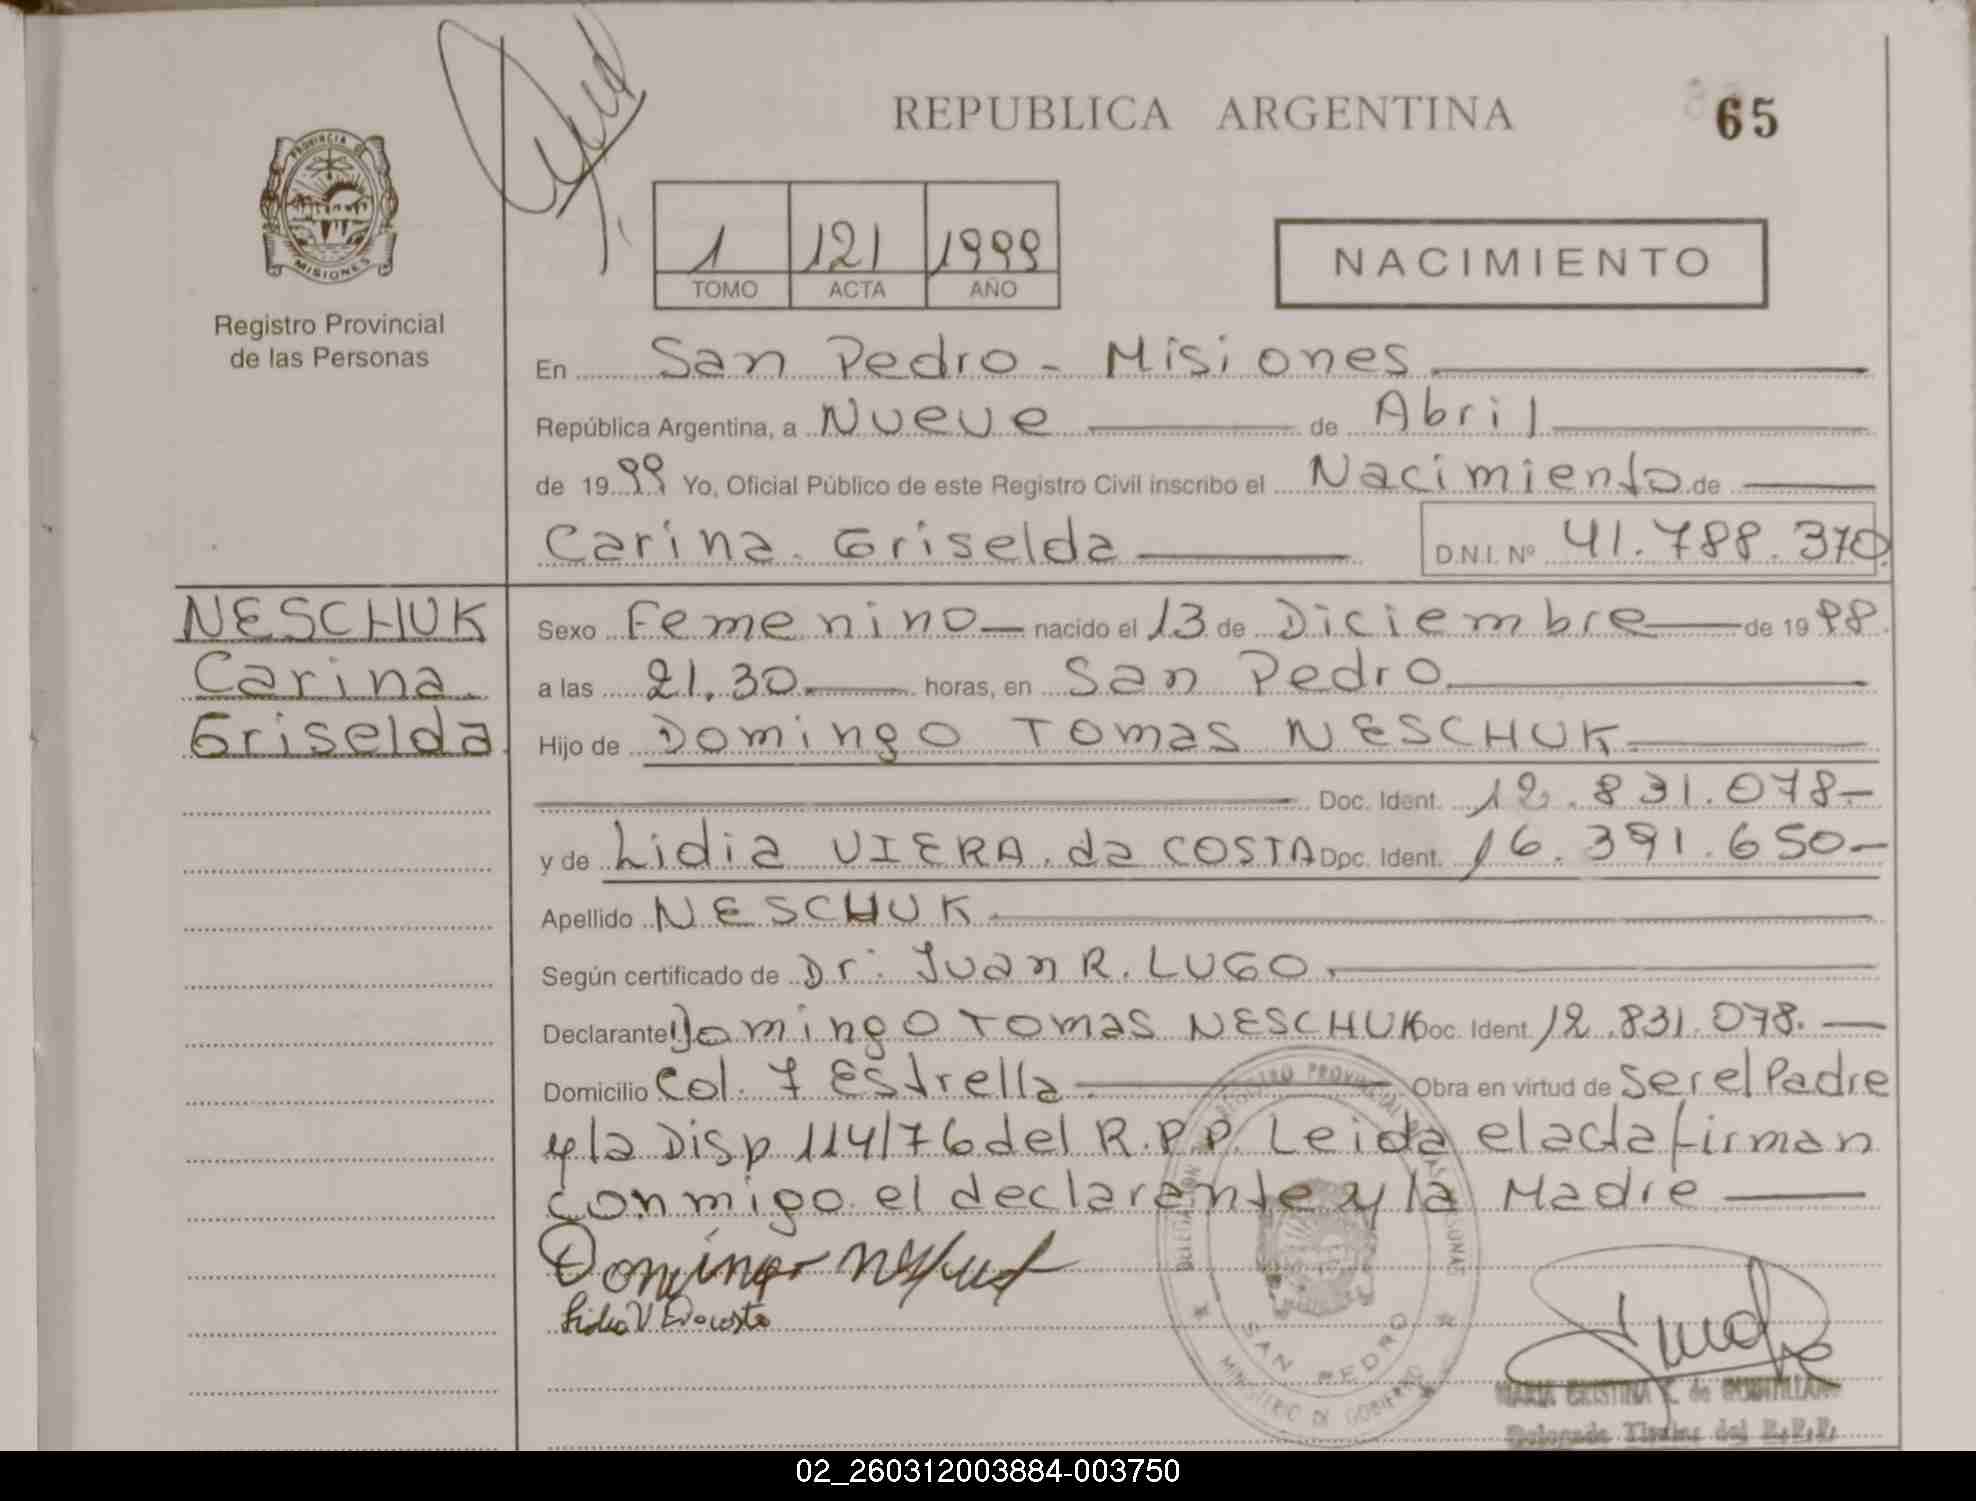 REPUBLICA ARGENTINA
65
PROVINCIA DE
MISIONES
Registro Provincial
de las Personas
1 121 1999
TOMO ACTA AÑO
NACIMIENTO
En San Pedro - Misiones
República Argentina, a Nueve de Abril
de 1999 Yo, Oficial Público de este Registro Civil inscribo el Nacimiento de
Carina Griselda D.N.I. Nº 41.788.370
NESCHUK
Carina
Griselda
Sexo Femenino nacido el 13 de Diciembre de 1998.
a las 21.30 horas, en San Pedro
Hijo de Domingo Tomas NESCHUK
Doc. Ident. 12.831.078-
y de Lidia VIERA da COSTA Doc. Ident. 16.391.650-
Apellido NESCHUK
Según certificado de Dr. Juan R. LUGO.
Declarante Domingo Tomas NESCHUK Doc. Ident. 12.831.078.
Domicilio Col. 7 Estrella Obra en virtud de Ser el Padre
y la Disp 114/76 del R.P.P. Leida el acta firman
conmigo el declarante y la Madre
REGISTRO PROVINCIAL
SAN PEDRO
MINISTERIO DE GOBIERNO
MARIA CRISTINA
del R.P.P.
02_260312003884-003750